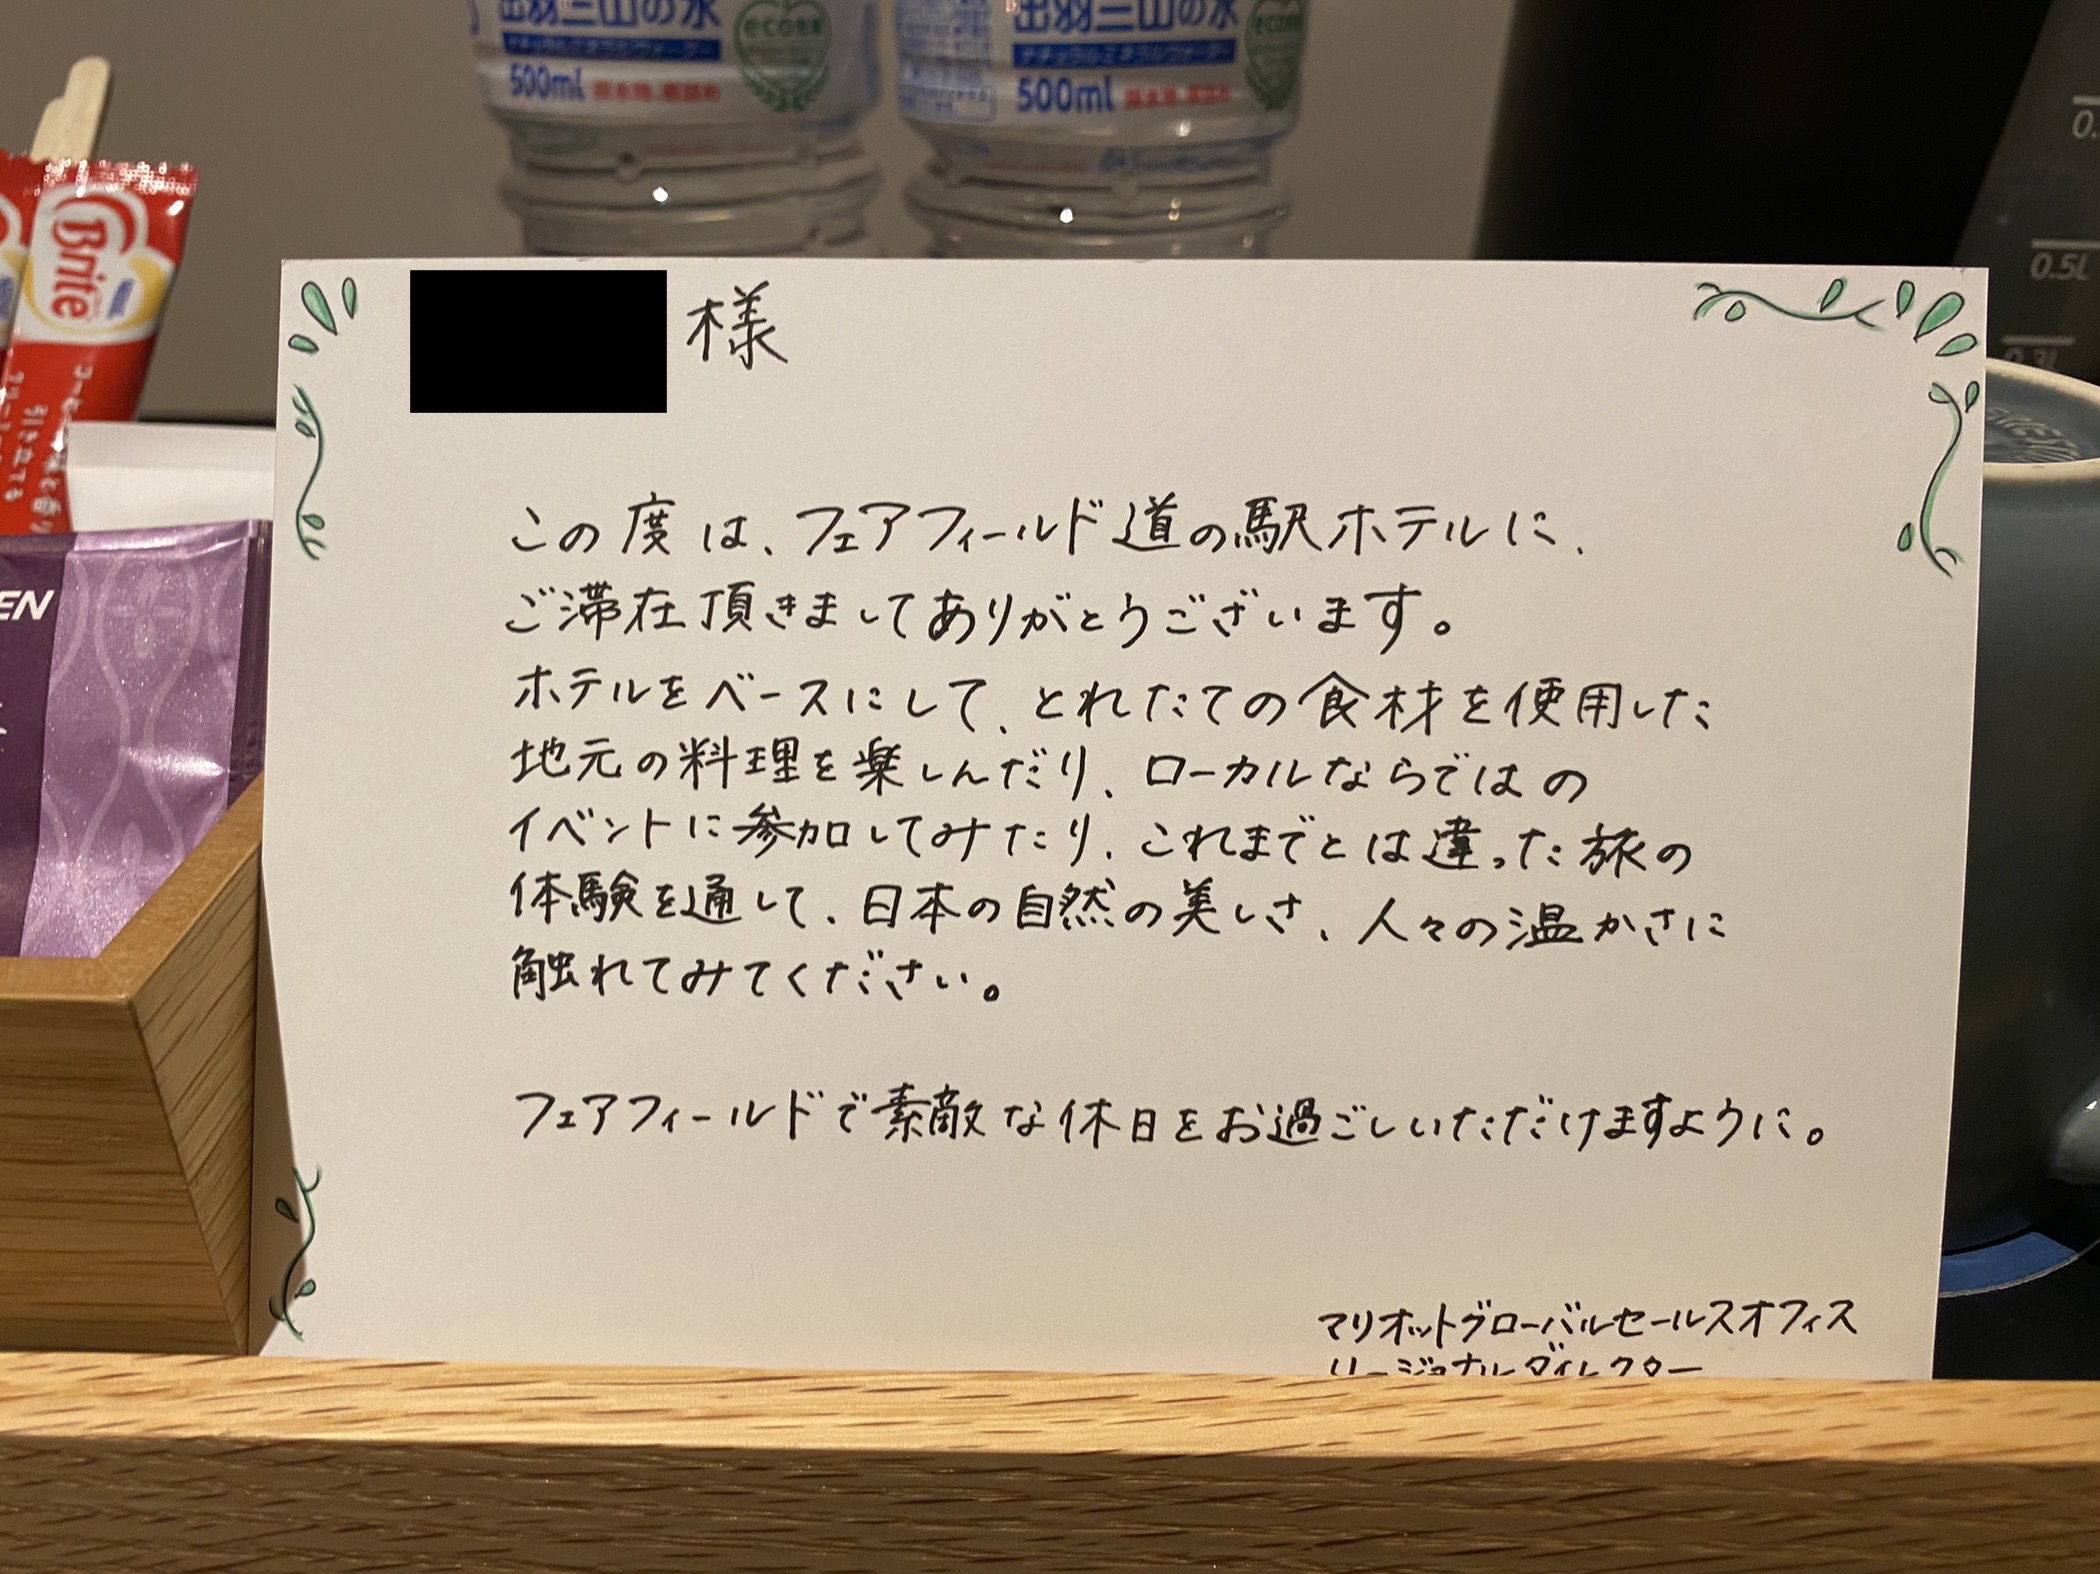 出羽三山の水
ナチュラルミネラルウォーター
500ml
ecoる
出羽三山の水
ナチュラルミネラルウォーター
500ml
Brite
引き立てる
EN
0.5L
様
この度は、フェアフィールド道の駅ホテルに、
ご滞在頂きましてありがとうございます。
ホテルをベースにして、とれたての食材を使用した
地元の料理を楽しんだり、ローカルならではの
イベントに参加してみたり、これまでとは違った旅の
体験を通して、日本の自然の美しさ、人々の温かさに
触れてみてください。
フェアフィールドで素敵な休日をお過ごしいただけますように。
マリオットグローバルセールスオフィス
リージョナルダイレクター